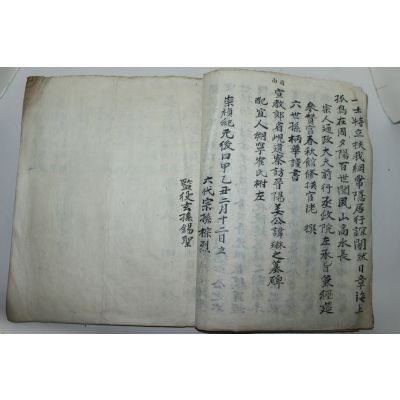 一士特立扶我綱常隱居行誼闇然日章海上
孤島在周夕陽百世聞風山高水長
宗人通政大夫前行承政院左承旨兼經筵
參贊官春秋館修撰官 撰
六世孫柄華謹書
宣教郎省峴道察訪晉陽姜公諱 之墓碑
配宜人綱寧崔氏祔左
崇禎紀元後四甲乙丑二月十二日立
六代宗孫 烈
監役玄孫錫聖